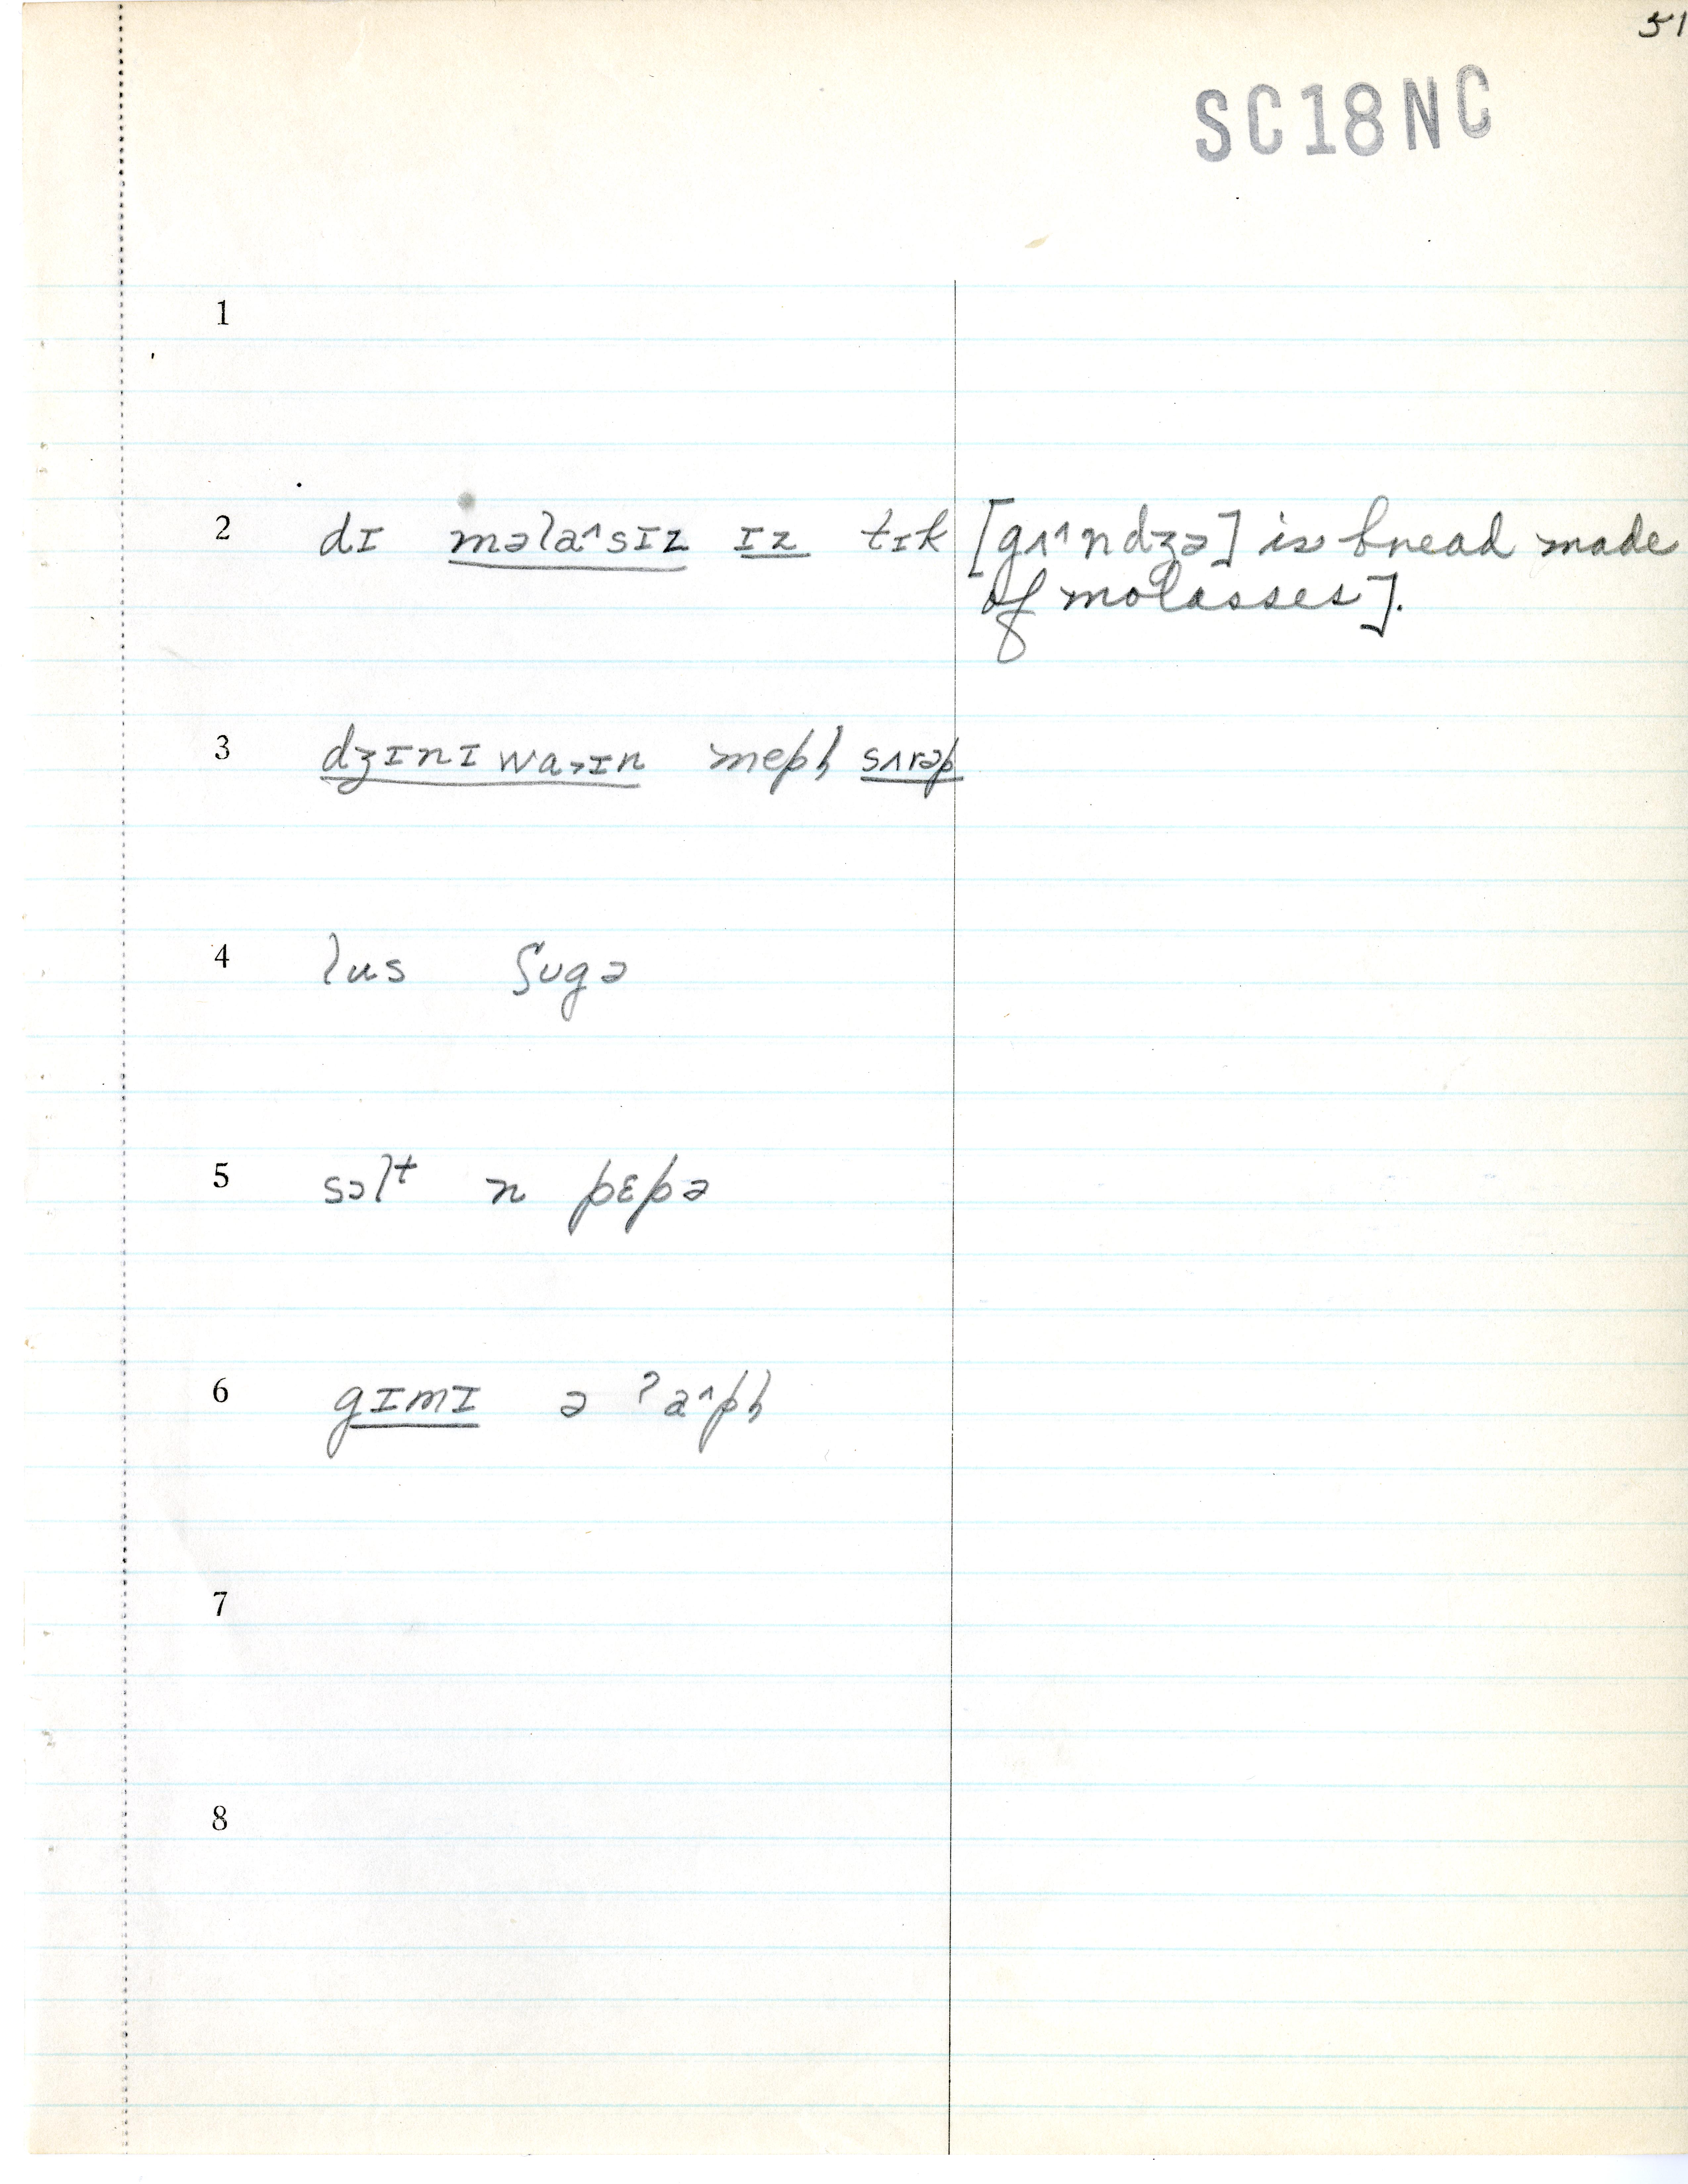 51
SC18NC
1
2 dɪ məla^sɪz ɪz tɪk [gʌ^ndʒə] is bread made
of molasses].
3 dʒɪnɪwaɪn mepɦ sʌrəp
4 lus ʃʊgə
5 sɔlᵗ n pɛpə
6 gɪmɪ ə ʔa^pɦ
7
8